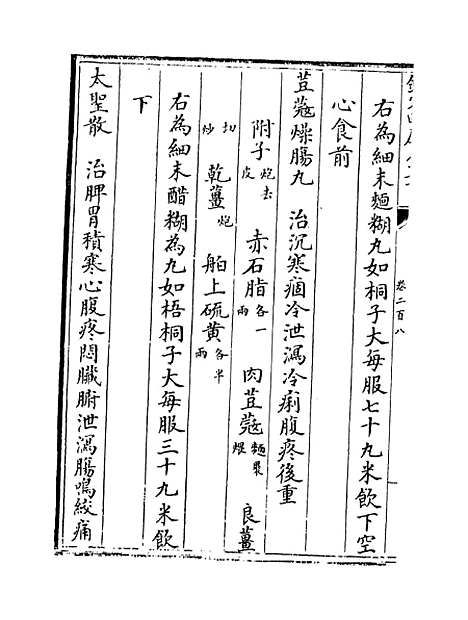 欽定四庫全書
卷二百八
右為細末麵糊丸如桐子大每服七十丸米飲下空
心食前
荳蔻燥腸丸　治沉寒痼冷泄瀉冷痢腹疼後重
附子炮去皮　赤石脂各一兩　肉荳蔻麵裹煨　良薑
切炒　乾薑炮　舶上硫黄各半兩
右為細末醋糊為丸如梧桐子大每服三十丸米飲
下
太聖散　治脾胃積寒心腹疼悶臟腑泄瀉腸鳴絞痛